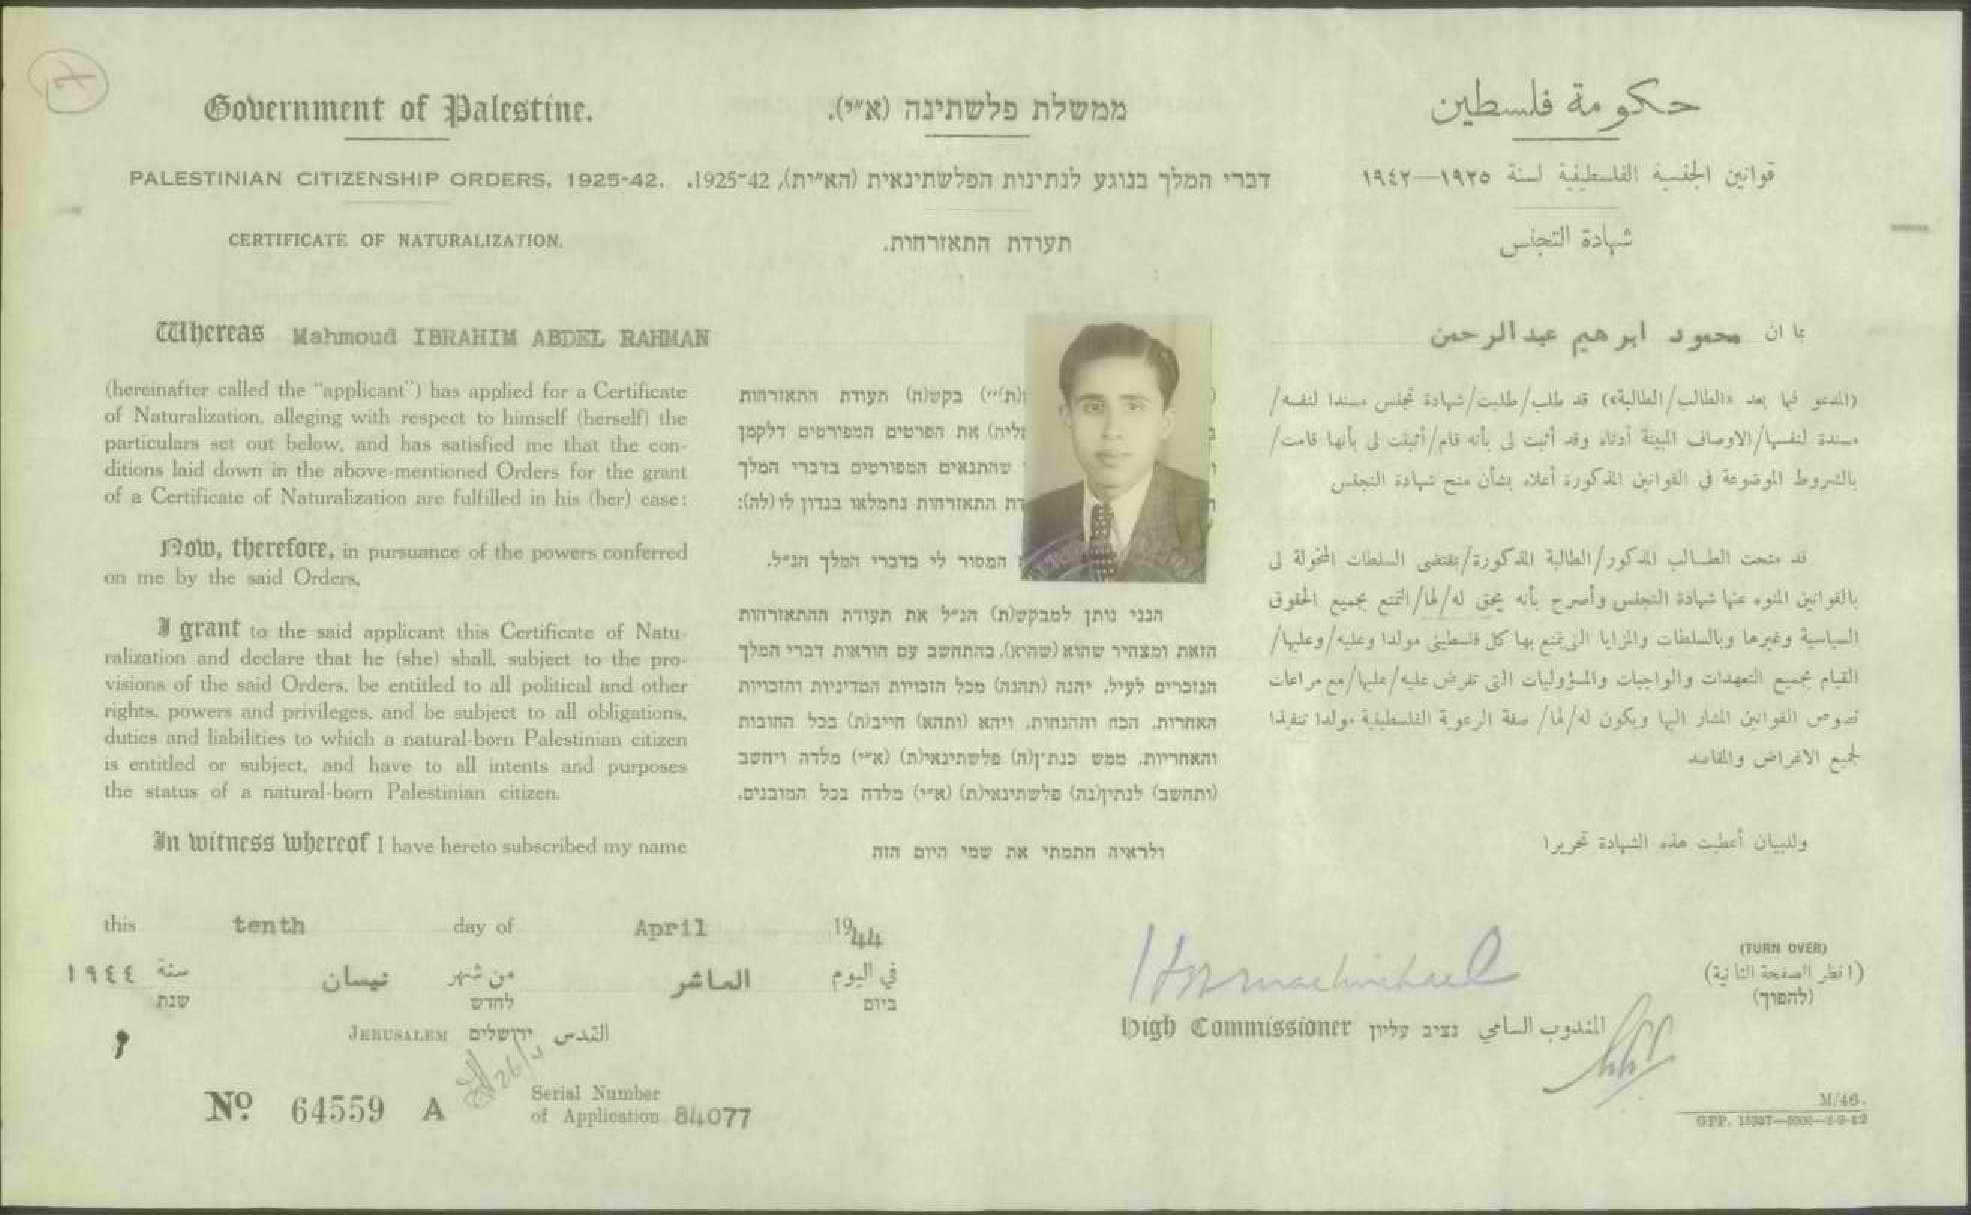 Government of Palestine.
PALESTINIAN CITIZENSHIP ORDERS, 1925-42.
CERTIFICATE OF NATURALIZATION.
Whereas Mahmoud IBRAHIM ABDEL RAHMAN
(hereinafter called the “applicant”) has applied for a Certificate
of Naturalization, alleging with respect to himself (herself) the
particulars set out below, and has satisfied me that the con-
ditions laid down in the above-mentioned Orders for the grant
of a Certificate of Naturalization are fulfilled in his (her) case:
Now, therefore, in pursuance of the powers conferred
on me by the said Orders,
I grant to the said applicant this Certificate of Natu-
ralization and declare that he (she) shall, subject to the pro-
visions of the said Orders, be entitled to all political and other
rights, powers and privileges, and be subject to all obligations,
duties and liabilities to which a natural-born Palestinian citizen
is entitled or subject, and have to all intents and purposes
the status of a natural-born Palestinian citizen.
In witness whereof I have hereto subscribed my name
ממשלת פלשתינה (א״י).
דברי המלך בנוגע לנתינות הפלשתינאית (הא״ית), 1925-42.
תעודת התאזרחות.
(ת)״) בקש(ה) תעודת התאזרחות
ליה) את הפרטים המפורטים דלקמן
שהתנאים המפורטים בדברי המלך
דת התאזרחות נתמלאו בנדון לו (לה):
המסור לי בדברי המלך הנ״ל.
הנני נותן למבקש(ת) הנ״ל את תעודת ההתאזרחות
הזאת ומצהיר שהוא (שהיא), בהתחשב עם הוראות דברי המלך
הנזכרים לעיל, יהנה (תהנה) מכל הזכויות המדיניות והזכויות
האחרות, הכח וההנחות, ויהא (ותהא) חייב(ת) בכל החובות
והאחריות, ממש כנת־ין(ה) פלשתינאי(ת) (א״י) מלדה ויחשב
(ותחשב) לנתין(נה) פלשתינאי(ת) (א״י) מלדה בכל המובנים.
ולראיה חתמתי את שמי היום הזה
حكومة فلسطين
قوانين الجنسية الفلسطينية لسنة ١٩٢٥—١٩٤٢
شهادة التجنس
بما ان محمود ابرهيم عبدالرحمن
(المدعو فيما بعد «الطالب/الطالبة») قد طلب/طلبت/شهادة تجنس مسندا لنفسه/
مسندة لنفسها/الاوصاف المبينة أدناه وقد أثبت لى بأنه قام/أثبتت لى بأنها قامت/
بالشروط الموضوعة في القوانين المذكورة أعلاه بشأن منح شهادة التجنس
قد منحت الطالب المذكور/الطالبة المذكورة/بمقتضى السلطات المخولة لى
بالقوانين المنوه عنها شهادة التجنس وأصرح بأنه يحق له/لها/التمتع بجميع الحقوق
السياسية وغيرها وبالسلطات والمزايا التى يتمتع بها كل فلسطينى مولدا وعليه/وعليها/
القيام بجميع التعهدات والواجبات والمسؤوليات التى تفرض عليه/عليها/مع مراعات
نصوص القوانين المشار اليها ويكون له/لها/ صفة الرعوية الفلسطينية مولدا تنفيذا
لجميع الاغراض والمقاصد
وللبيان أعطيت هذه الشهادة تحريرا
this tenth day of April 1944
في اليوم العاشر من شهر نيسان سنة ١٩٤٤
ביום לחדש שנת
JERUSALEM ירושלים القدس
No. 64559 A
Serial Number
of Application 84077
High Commissioner נציב עליון المندوب السامي
(TURN OVER)
(انظر الصفحة الثانية)
(להפוך)
M/46.